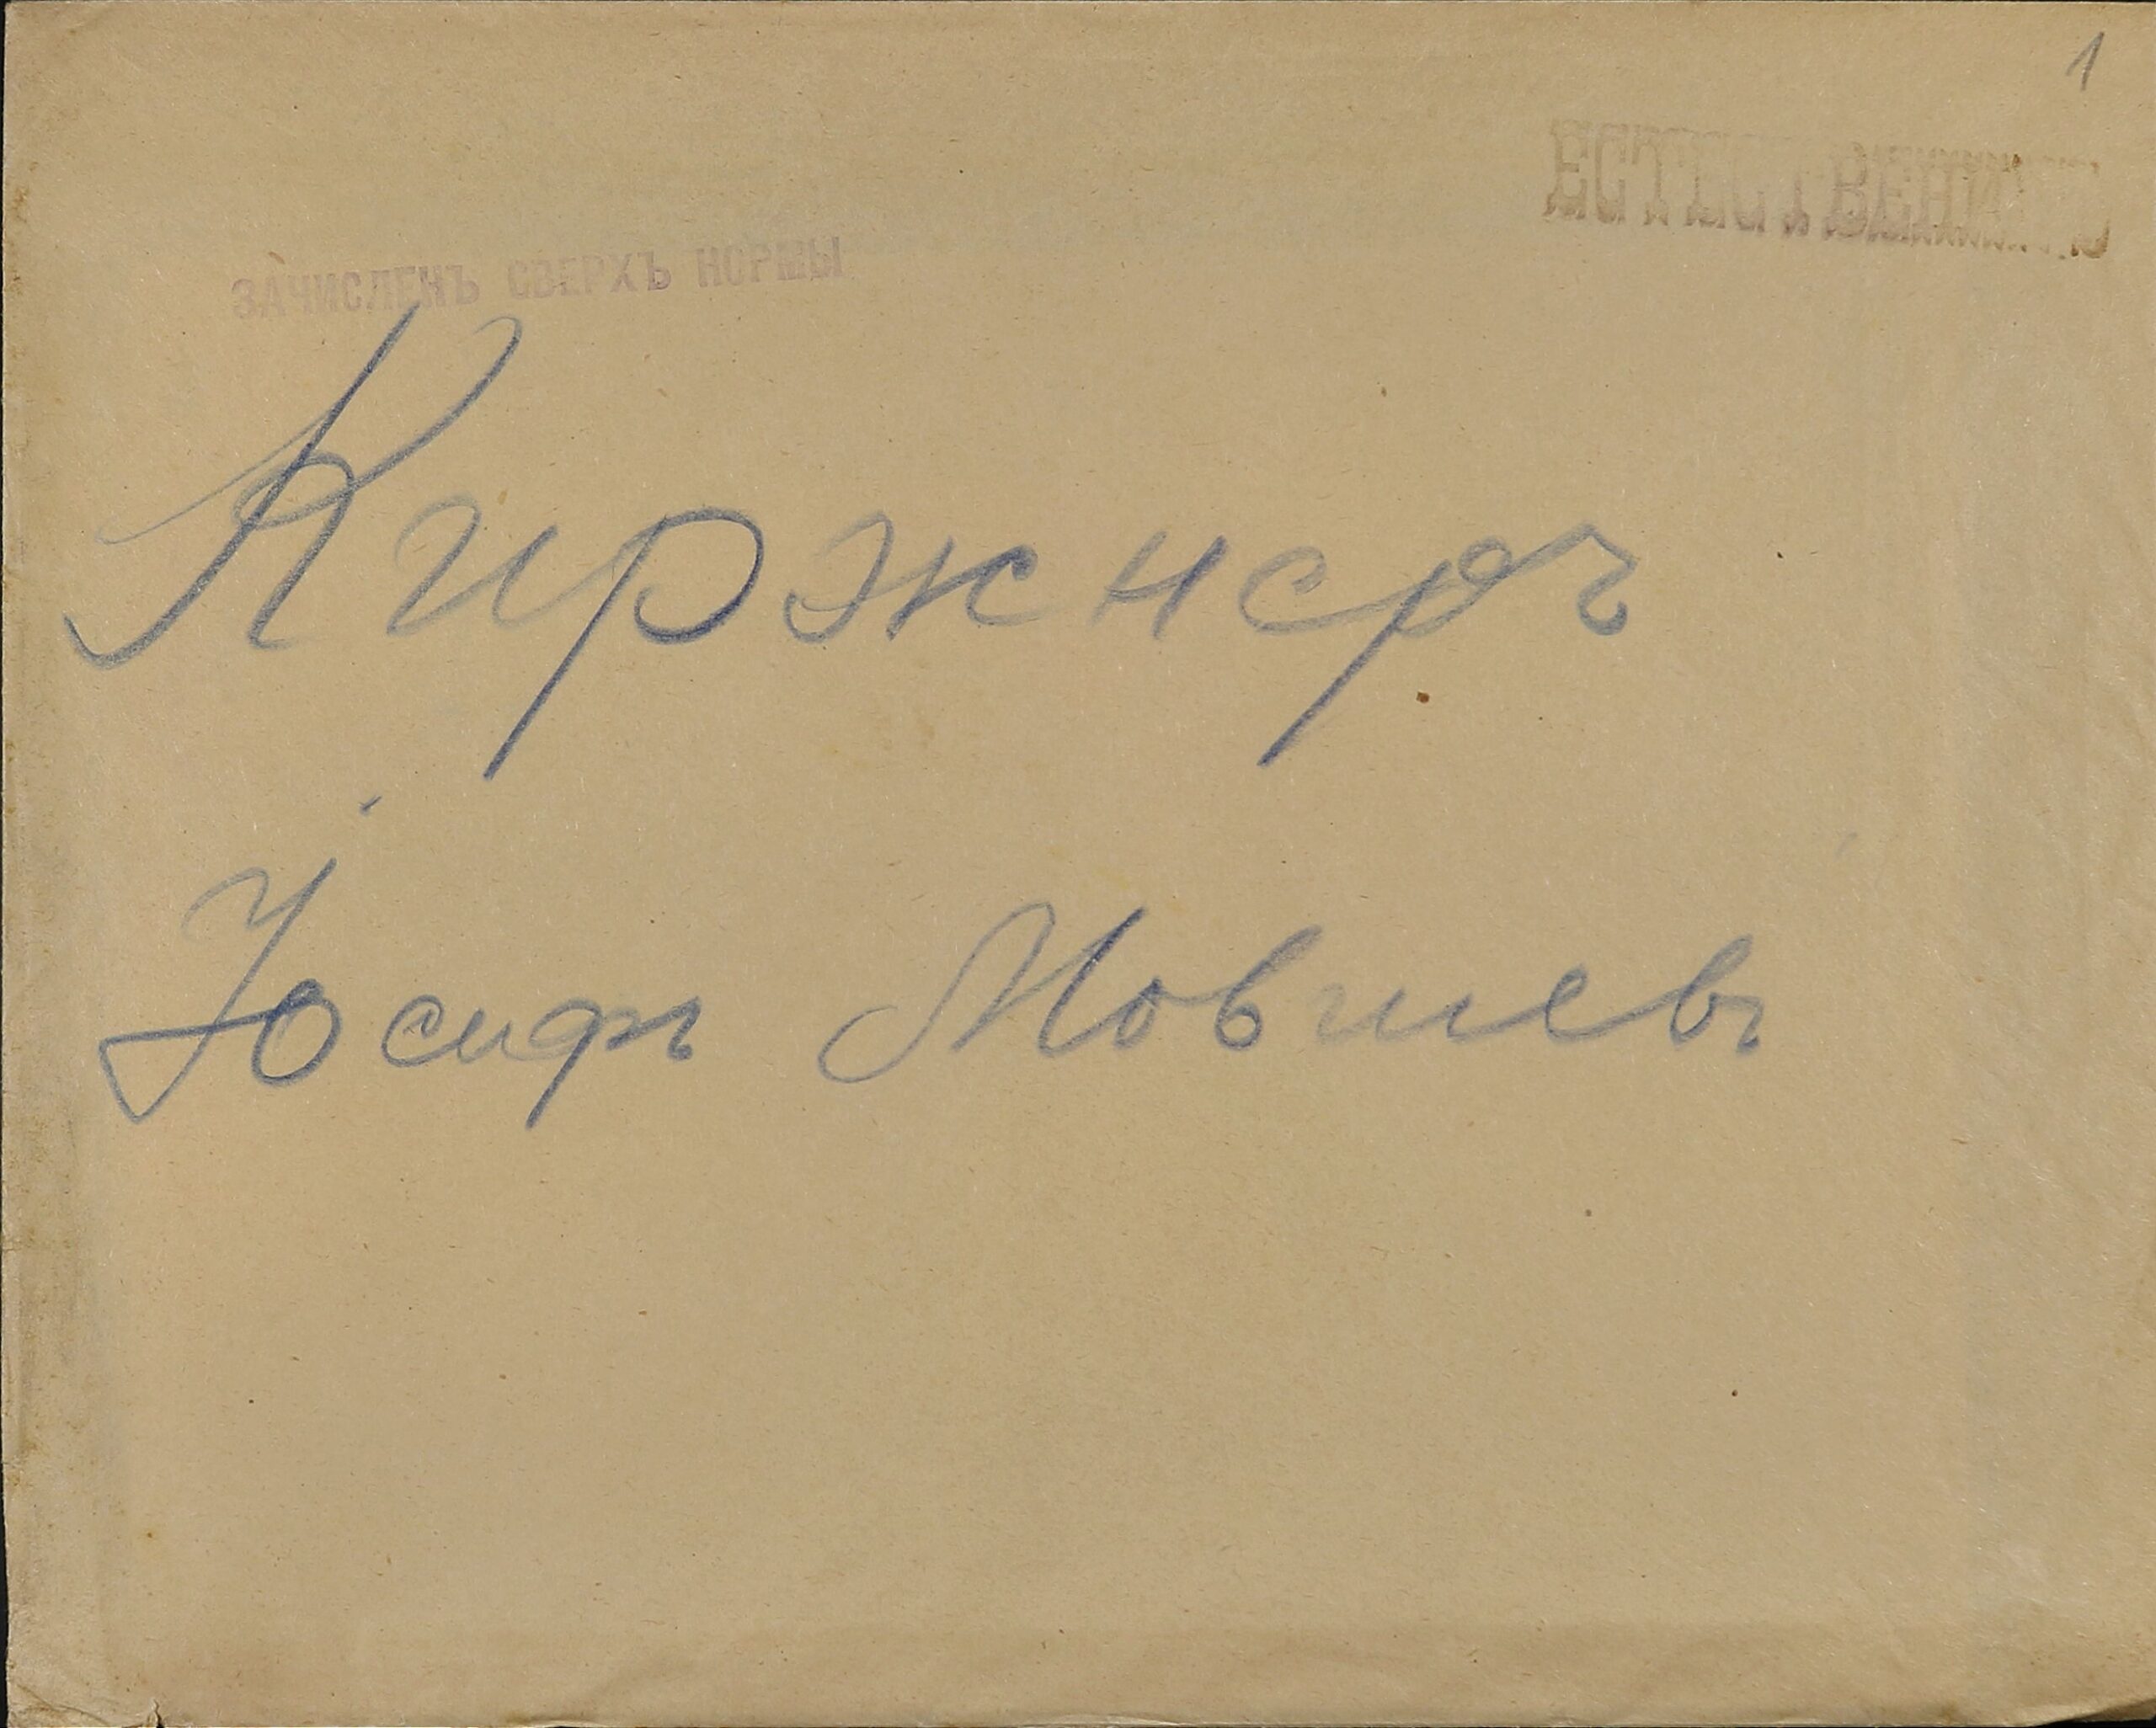 1
ЕСТЕСТВЕНН
ЗАЧИСЛЕНЪ СВЕРХЪ НОРМЫ
Киржнеръ
Іосифъ Мовшевъ